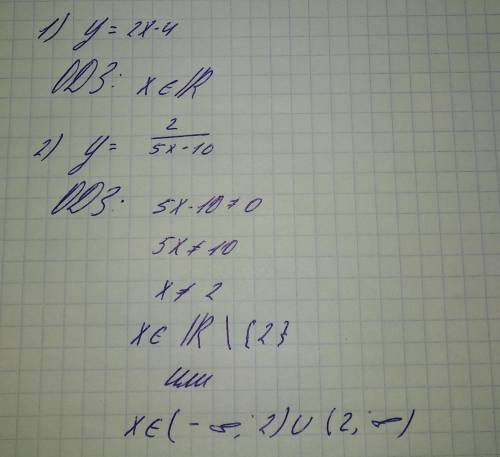 1) y = 2x-4
ОДЗ: x ∈ ℝ
2) y = 2/(5x-10)
ОДЗ: 5x-10 ≠ 0
5x ≠ 10
x ≠ 2
x ∈ ℝ \ {2}
или
x ∈ (-∞; 2) ∪ (2; ∞)